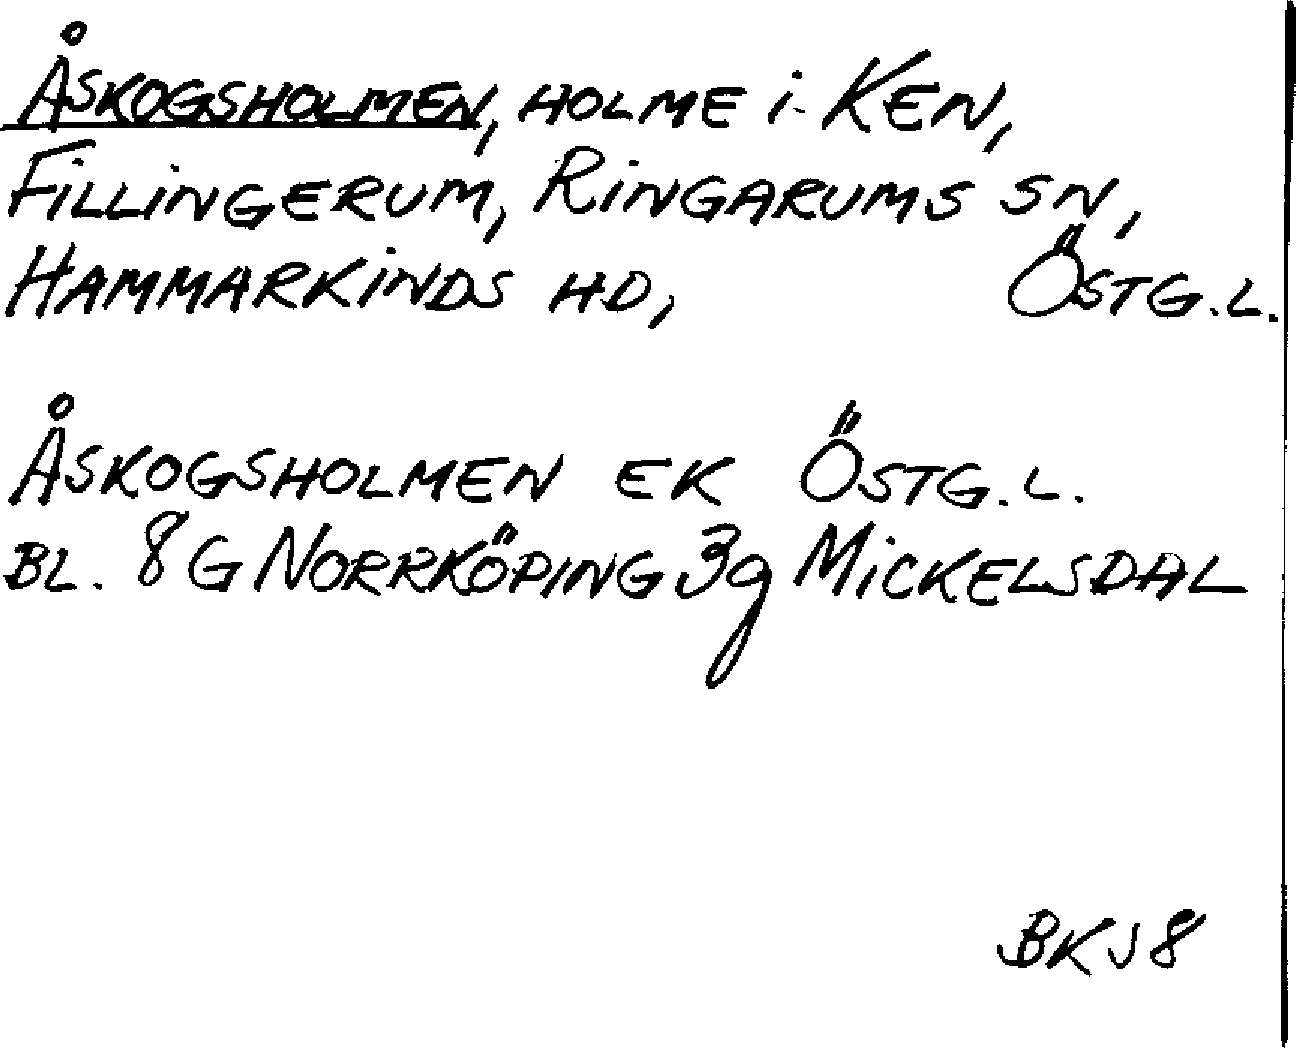 ÅSKOGSHOLMEN, HOLME i KEN,
FILLINGERUM, RINGARUMS SN,
HAMMARKINDS HD, ÖSTG.L.
ÅSKOGSHOLMEN EK ÖSTG.L.
BL. 8G NORRKÖPING 3g MICKELSDAL
BKJ8